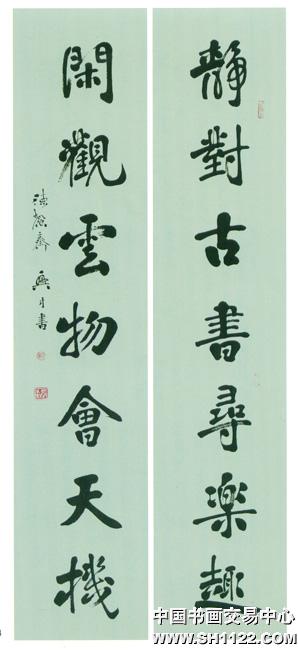 靜對古書尋樂趣
閑觀雲物會天機
中国书画交易中心
www.SH1122.com